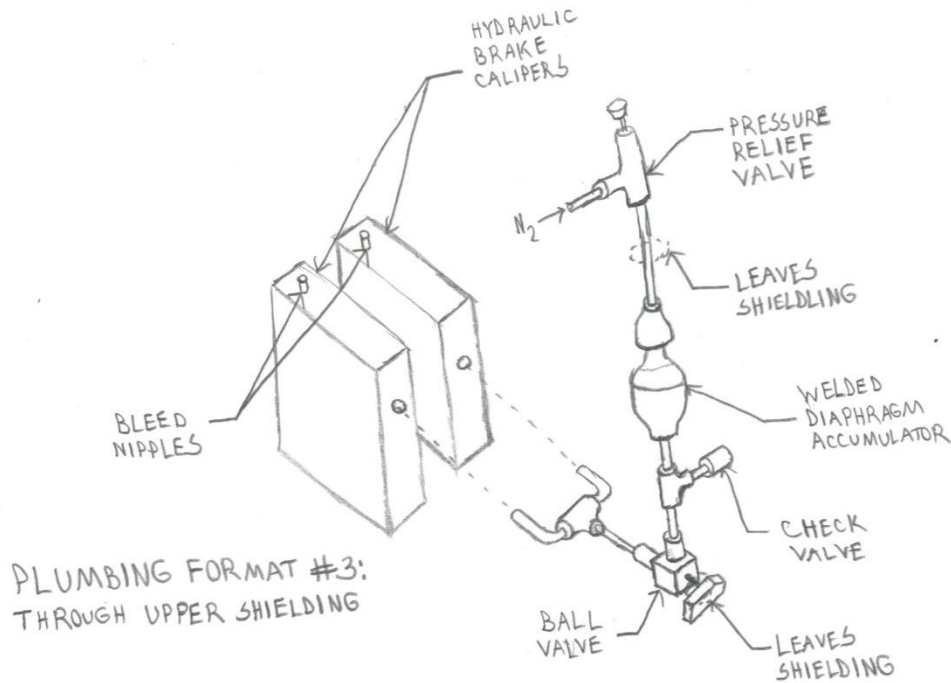 HYDRAULIC
BRAKE
CALIPERS
PRESSURE
RELIEF
VALVE
N2
LEAVES
SHIELDLING
BLEED
NIPPLES
WELDED
DIAPHRAGM
ACCUMULATOR
CHECK
VALVE
PLUMBING FORMAT #3:
THROUGH UPPER SHIELDING
BALL
VALVE
LEAVES
SHIELDING